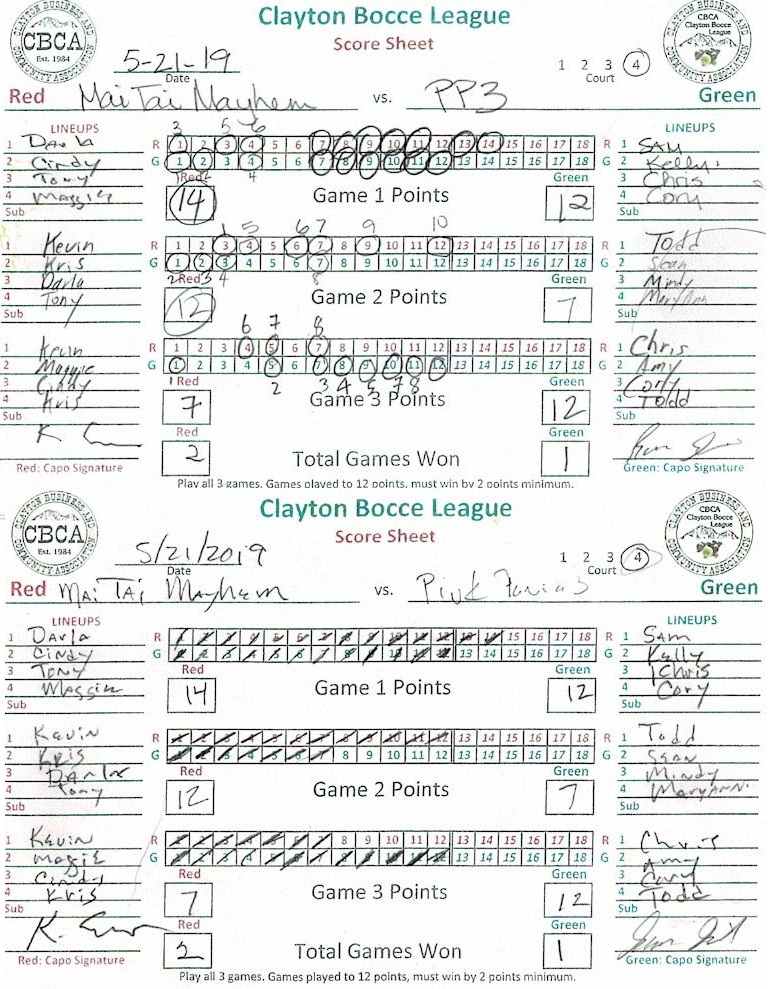 CLAYTON BUSINESS AND COMMUNITY ASSOCIATION
CBCA
Est. 1984
Clayton Bocce League
Score Sheet
CBCA
Clayton Bocce
League
5-21-19
Date
1 2 3 4
Court
Red Mai Tai Mayhem vs. PP3 Green
LINEUPS
1 Darla
2 Cindy
3 Tony
4 Maggie
Sub
3 5 6
R 1 2 3 4 5 6 7 8 9 10 11 12 13 14 15 16 17 18 R
G 1 2 3 4 5 6 7 8 9 10 11 12 13 14 15 16 17 18 G
Red
14
Game 1 Points
Green
12
LINEUPS
1 SAM
2 Kelly
3 Chris
4 Cory
Sub
1 Kevin
2 Kris
3 Darla
4 Tony
Sub
1 5 6 7 9 10
R 1 2 3 4 5 6 7 8 9 10 11 12 13 14 15 16 17 18 R
G 1 2 3 4 5 6 7 8 9 10 11 12 13 14 15 16 17 18 G
2 Red 3 4 8
12
Game 2 Points
Green
7
1 Todd
2 Sean
3 Mindy
4 MaryAnn
Sub
1 Kevin
2 Maggie
3 Cindy
4 Kris
Sub
6 7 8
R 1 2 3 4 5 6 7 8 9 10 11 12 13 14 15 16 17 18 R
G 1 2 3 4 5 6 7 8 9 10 11 12 13 14 15 16 17 18 G
1 Red 2 3 4 5 7 8
7
Game 3 Points
Green
12
1 Chris
2 Amy
3 Cory
4 Todd
Sub
Red: Capo Signature
Red
2
Total Games Won
Green
1
Green: Capo Signature
Play all 3 games. Games played to 12 points, must win by 2 points minimum.
CLAYTON BUSINESS AND COMMUNITY ASSOCIATION
CBCA
Est. 1984
Clayton Bocce League
Score Sheet
CBCA
Clayton Bocce
League
5/21/2019
Date
1 2 3 4
Court
Red Mai Tai Mayhem vs. Green
LINEUPS
1 Darla
2 Cindy
3 Tony
4 Maggie
Sub
R 1 2 3 4 5 6 7 8 9 10 11 12 13 14 15 16 17 18 R
G 1 2 3 4 5 6 7 8 9 10 11 12 13 14 15 16 17 18 G
Red
14
Game 1 Points
Green
12
LINEUPS
1 Sam
2 Kelly
3 Chris
4 Cory
Sub
1 Kevin
2 Kris
3 Darla
4 Tony
Sub
R 1 2 3 4 5 6 7 8 9 10 11 12 13 14 15 16 17 18 R
G 1 2 3 4 5 6 7 8 9 10 11 12 13 14 15 16 17 18 G
Red
12
Game 2 Points
Green
7
1 Todd
2 Sean
3 Mindy
4 MaryAnn
Sub
1 Kevin
2 Magie
3 Cindy
4 Kris
Sub
R 1 2 3 4 5 6 7 8 9 10 11 12 13 14 15 16 17 18 R
G 1 2 3 4 5 6 7 8 9 10 11 12 13 14 15 16 17 18 G
Red
7
Game 3 Points
Green
12
1 Chris
2 Amy
3 Cory
4 Todd
Sub
Red: Capo Signature
Red
2
Total Games Won
Green
1
Green: Capo Signature
Play all 3 games. Games played to 12 points, must win by 2 points minimum.